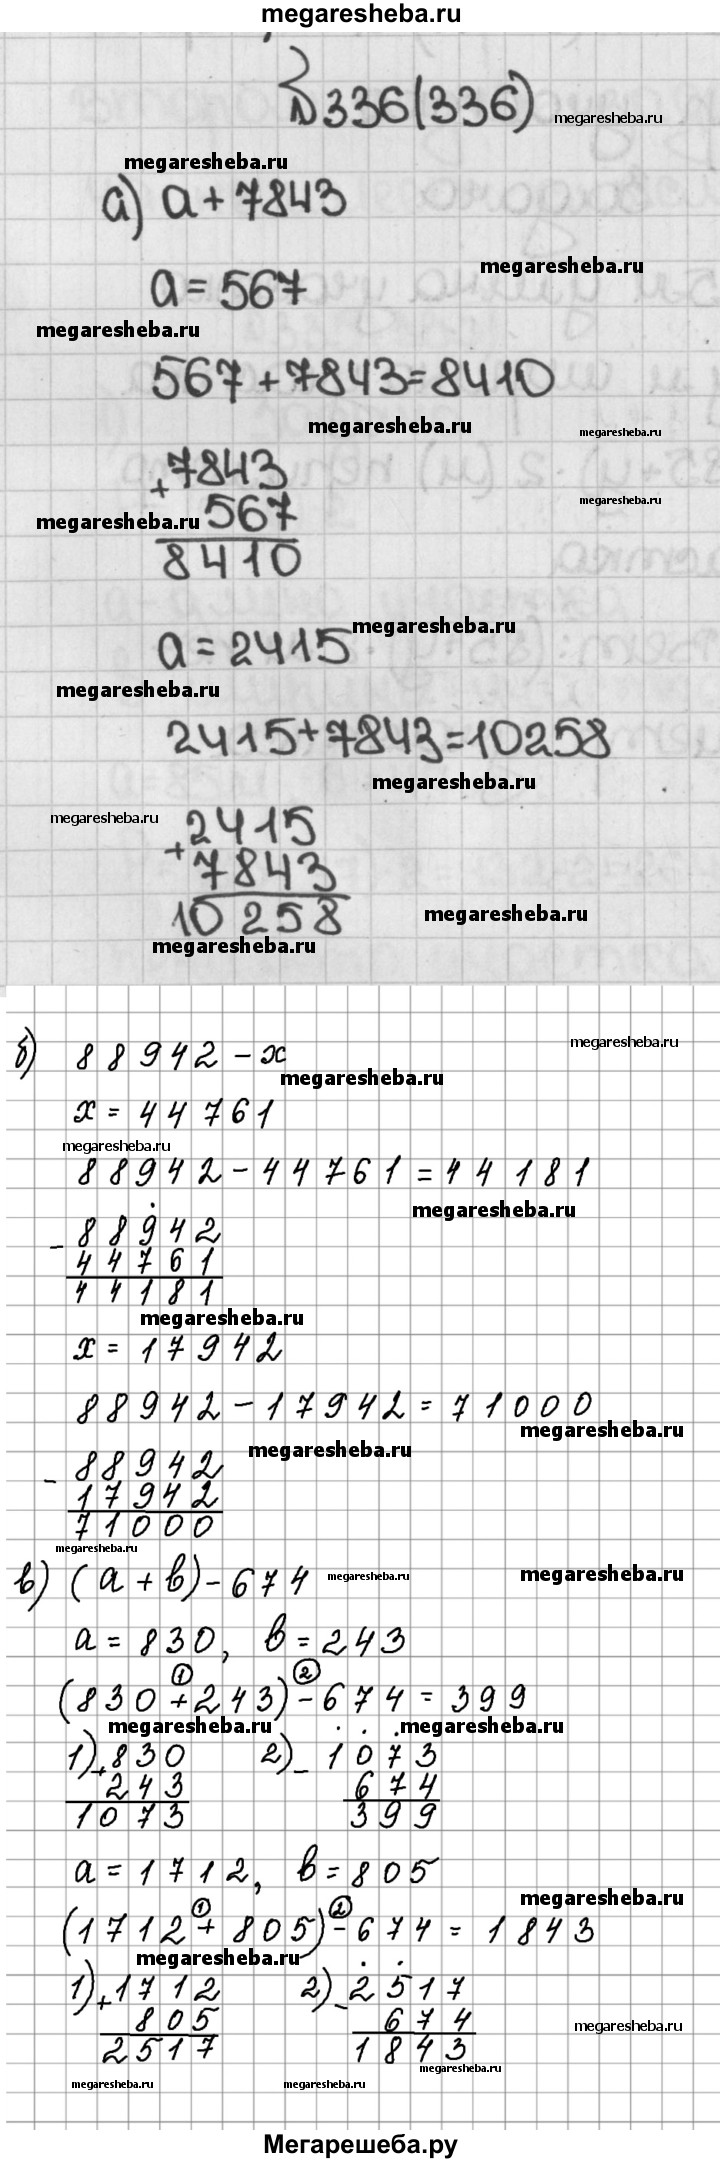 megaresheba.ru
№336(336)
megaresheba.ru
megaresheba.ru
а) a + 7843
megaresheba.ru
a = 567
megaresheba.ru
567 + 7843 = 8410
megaresheba.ru
megaresheba.ru
+ 7843
megaresheba.ru
567
megaresheba.ru
8410
a = 2415
megaresheba.ru
megaresheba.ru
2415 + 7843 = 10258
megaresheba.ru
megaresheba.ru
+ 2415
7843
10258
megaresheba.ru
megaresheba.ru
б) 88942 - x
megaresheba.ru
megaresheba.ru
x = 44761
megaresheba.ru
88942 - 44761 = 44181
megaresheba.ru
- 88942
44761
44181
megaresheba.ru
x = 17942
88942 - 17942 = 71000
megaresheba.ru
megaresheba.ru
- 88942
17942
71000
megaresheba.ru
в) (a + b) - 674
megaresheba.ru
megaresheba.ru
a = 830, b = 243
1 2
(830 + 243) - 674 = 399
megaresheba.ru
megaresheba.ru
1) + 830 2) - 1073
243 674
1073 399
a = 1712, b = 805
megaresheba.ru
1 2
(1712 + 805) - 674 = 1843
megaresheba.ru
1) + 1712 2) - 2517
805 674
megaresheba.ru
2517 1843
megaresheba.ru
megaresheba.ru
megaresheba.ru
Мегарешеба.ру